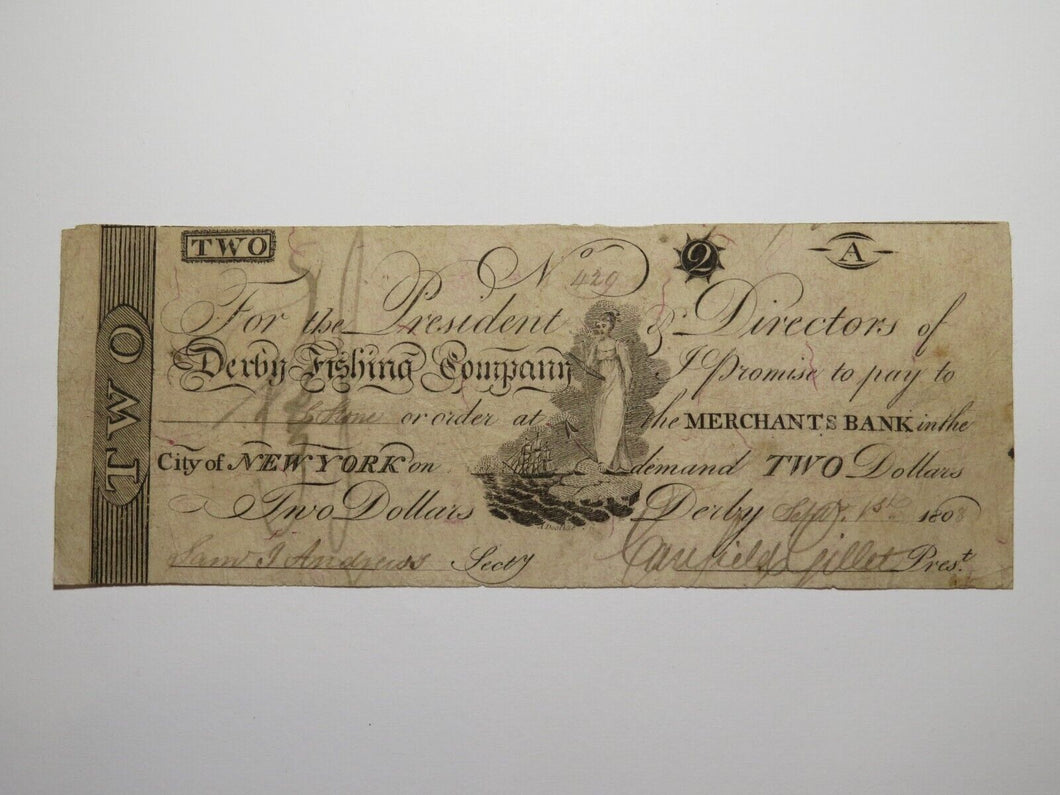 TWO
TWO
No 429
2
A
For the President & Directors of
Derby Fishing Company I Promise to pay to
or order at the MERCHANTS BANK in the
City of NEW YORK on demand TWO Dollars
Two Dollars Derby Sept. 1st 1808
A Doolittle
Sam J Andrews Secty
Canfield Gillet Prest.